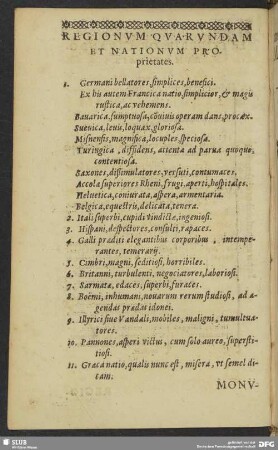 REGIONVM QVARVNDAM
ET NATIONVM PRO-
prietates.
1. Germani bellatores, simplices, benefici.
Ex his autem Francica natio, simplicior, & magis
rustica, ac vehemens.
Bauarica, sumptuosa, cōuiuijs operam dans, procax.
Sueuica, leuis, loquax, gloriosa.
Misnensis, magnifica, locuples, speciosa.
Turingica, diffidens, attenta ad parua quoque,
contentiosa.
Saxones, dissimulatores, versuti, contumaces.
Accolæ superiores Rheni, frugi, aperti, hospitales.
Heluetica, coniurata, aspera, armentaria.
Belgica, equestris, delicata, tenera.
2. Itali superbi, cupidi vindictæ, ingeniosi.
3. Hispani, despectores, consulti, rapaces.
4. Galli præditi elegantibus corporibus, intempe-
rantes, temerarij.
5. Cimbri, magni, seditiosi, horribiles.
6. Britanni, turbulenti, negociatores, laboriosi.
7. Sarmatæ, edaces, superbi, furaces.
8. Boëmi, inhumani, nouarum rerum studiosi, ad a-
gendas prædas idonei.
9. Illyrici siue Vandali, mobiles, maligni, tumultua-
tores.
10. Pannones, asperi victus, cum solo aureo, supersti-
tiosi.
11. Græca natio, qualis nunc est, misera, vt semel di-
cam.
MONV-
SLUB
Wir führen Wissen.
DFG